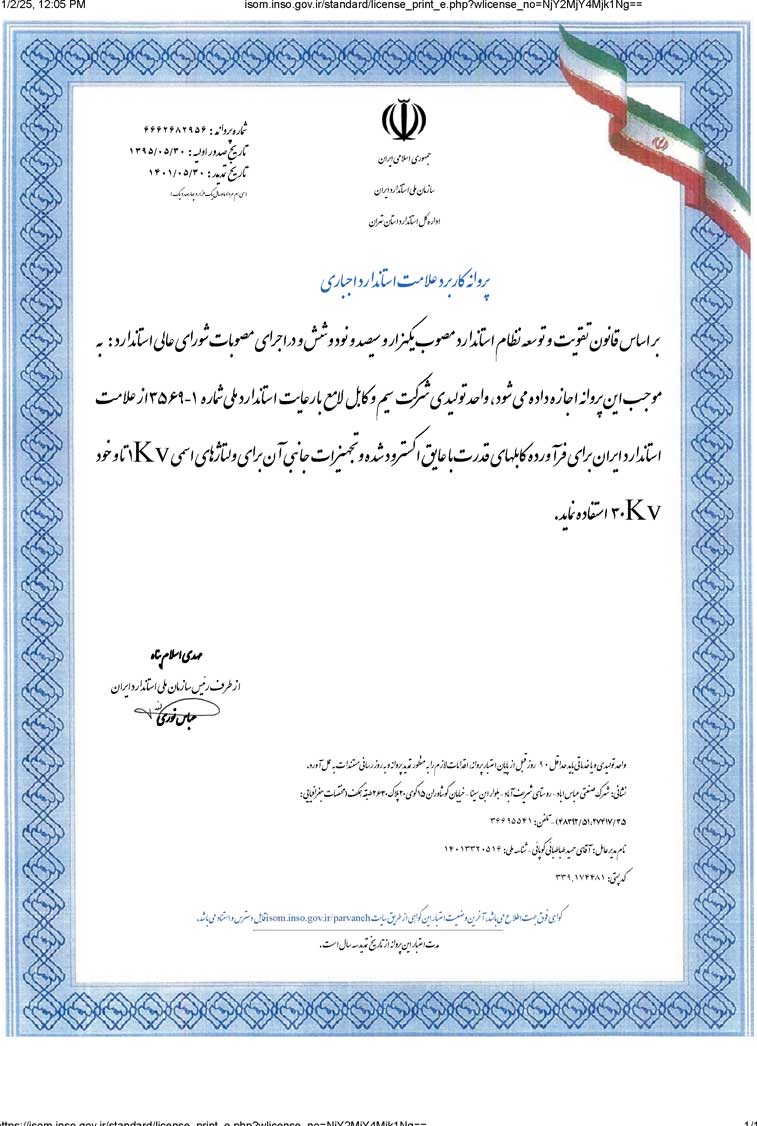 1/2/25, 12:05 PM
isom.inso.gov.ir/standard/license_print_e.php?wlicense_no=NjY2MjY4Mjk1Ng==
شماره پروانه : ۶۶۶۲۶۸۲۹۵۶
تاریخ صدور اولیه : ۱۳۹۵/۰۵/۳۰
تاریخ تمدید : ۱۴۰۱/۰۵/۳۰
(سی ام مرداد ماه سال یک هزار و چهارصد و یک)
جمهوری اسلامی ایران
سازمان ملی استاندارد ایران
اداره کل استاندارد استان تهران
پروانه کاربرد علامت استاندارد اجباری
بر اساس قانون تقویت و توسعه نظام استاندارد مصوب یکهزار و سیصد و نود و شش و در اجرای مصوبات شورای عالی استاندارد : به
موجب این پروانه اجازه داده می شود، واحد تولیدی شرکت سیم و کابل لامع با رعایت استاندارد ملی شماره ۱-۳۵۶۹ از علامت
استاندارد ایران برای فرآورده کابلهای قدرت با عایق اکسترود شده و تجهیزات جانبی آن برای ولتاژهای اسمی ۱Kv تا و خود
۳۰Kv استفاده نماید.
مهدی اسلام پناه
از طرف رئیس سازمان ملی استاندارد ایران
عباس نوری
واحد تولیدی و یا خدماتی باید حداقل ۹۰ روز قبل از پایان اعتبار پروانه، اقدامات لازم را به منظور تمدید پروانه و به روز رسانی مستندات به عمل آورد.
نشانی: شهرک صنعتی عباس آباد - روستای شریف آباد - بلوار ابن سینا - خیابان کوشاوران ۱۵کوی ۲۰پلاک ۲۶۳۰طبقه همکف (مختصات جغرافیایی:
۴۸۳۹۲/۵۱;۲۷۴۱۷/۳۵) - تلفن: ۳۶۶۹۵۵۴۱
نام مدیر عامل: آقای حمید طباطبائی کوپائی - شناسه ملی: ۱۴۰۱۳۳۲۰۵۱۶
کد پستی: ۳۳۹,۱۷۴۴۸۱
گواهی فوق جهت اطلاع می باشد. آخرین وضعیت اعتبار این گواهی از طریق سایت isom.inso.gov.ir/parvaneh قابل دسترس و استناد می باشد.
مدت اعتبار این پروانه از تاریخ تمدید سه سال است.
https://isom.inso.gov.ir/standard/license_print_e.php?wlicense_no=NjY2MjY4Mjk1Ng==
1/1